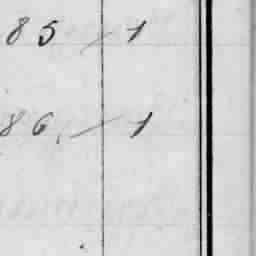 85 / 1
86. / 1